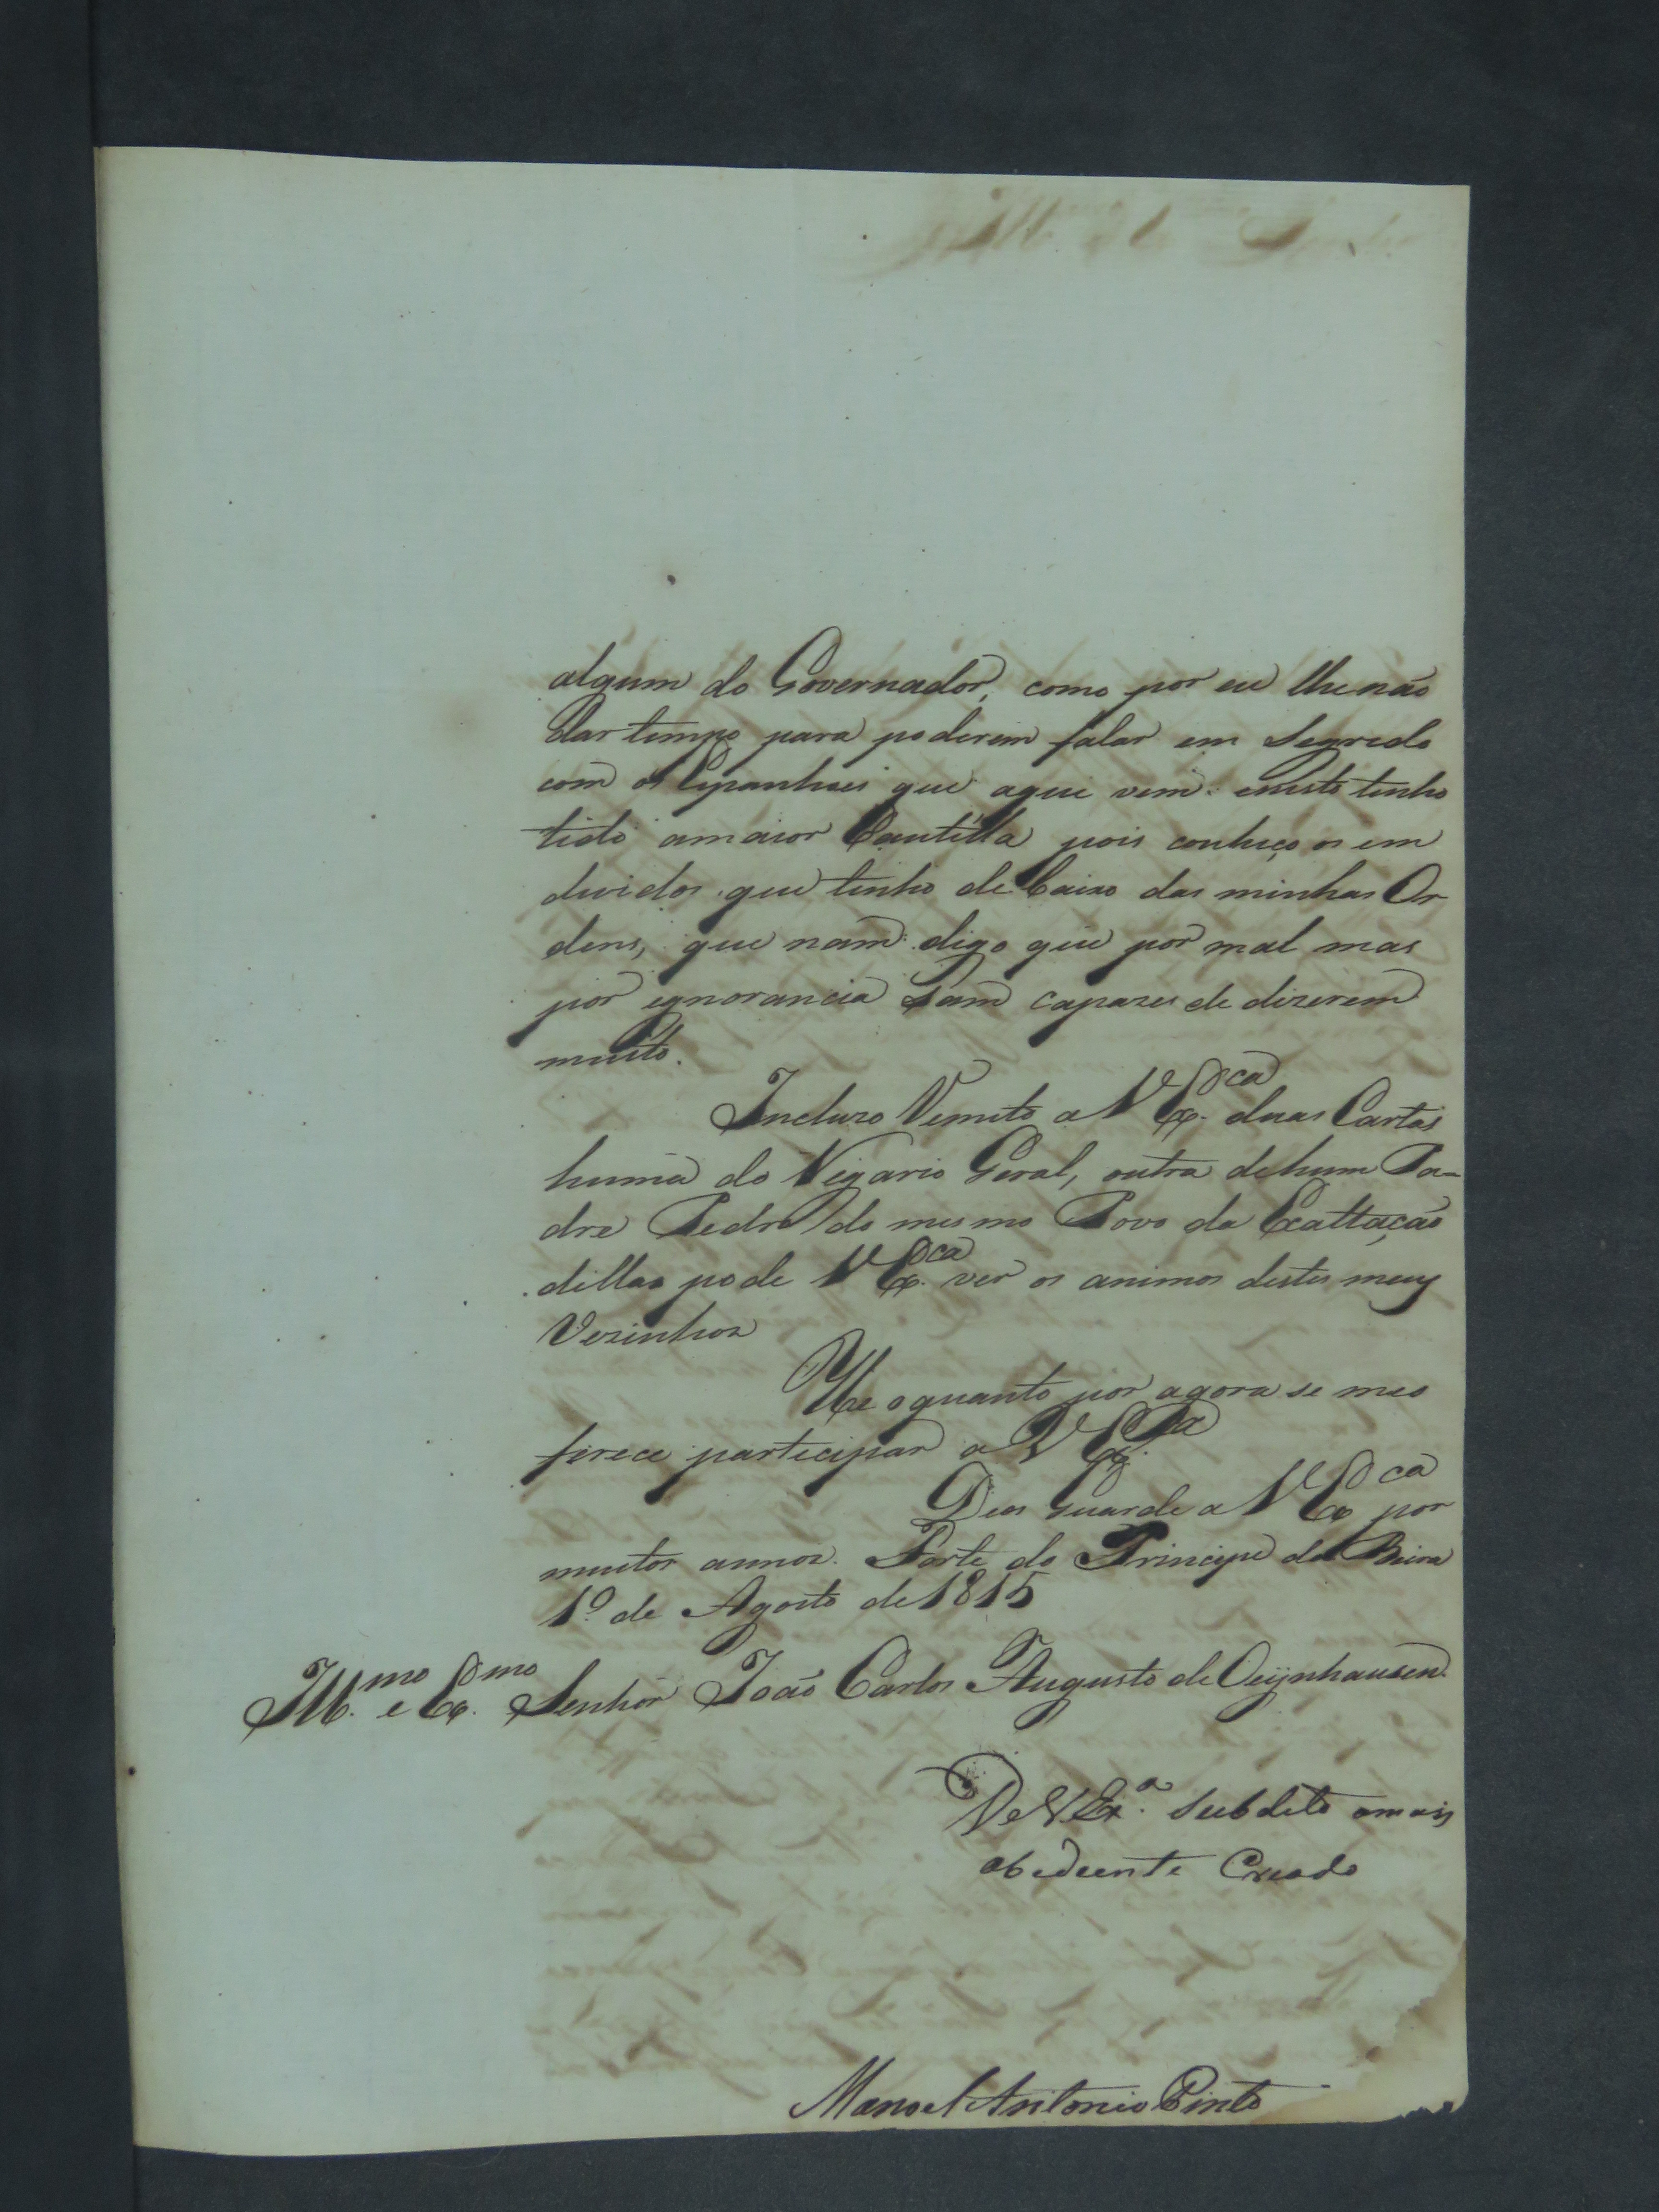 algum do Governador, como por eu lhe não
dar tempo para poderem falar em Segredo
com os Espanhoes que aqui vem. enisto tenho
tido amaior Cautélla pois conheço os em
duvidos que tenho debaixo das minhas Or
dens, que nam digo que por mal mas
por egnorancia Sam capazes de dizerem
muito.
Incluzo Remeto a V Ex.ca duas Cartas
huma do Vigario Geral, outra dehum Pa-
dre Pedro do mesmo Povo da Exaltação
dellas pode V Ex.ca ver os animos destes meuz
Vezinhos
He oquanto por agora se meo
ferece participar a V Ex.ca
Deos Guarde a V Ex.ca por
muitos annos. Forte do Principe da Beira
1.º de Agosto de 1815
Ill.mo e Ex.mo Senhor João Carlos Augusto de Oeijnhausen
De V Ex.a Subdito omais
obediente Creado
Manoel Antonio Pinto